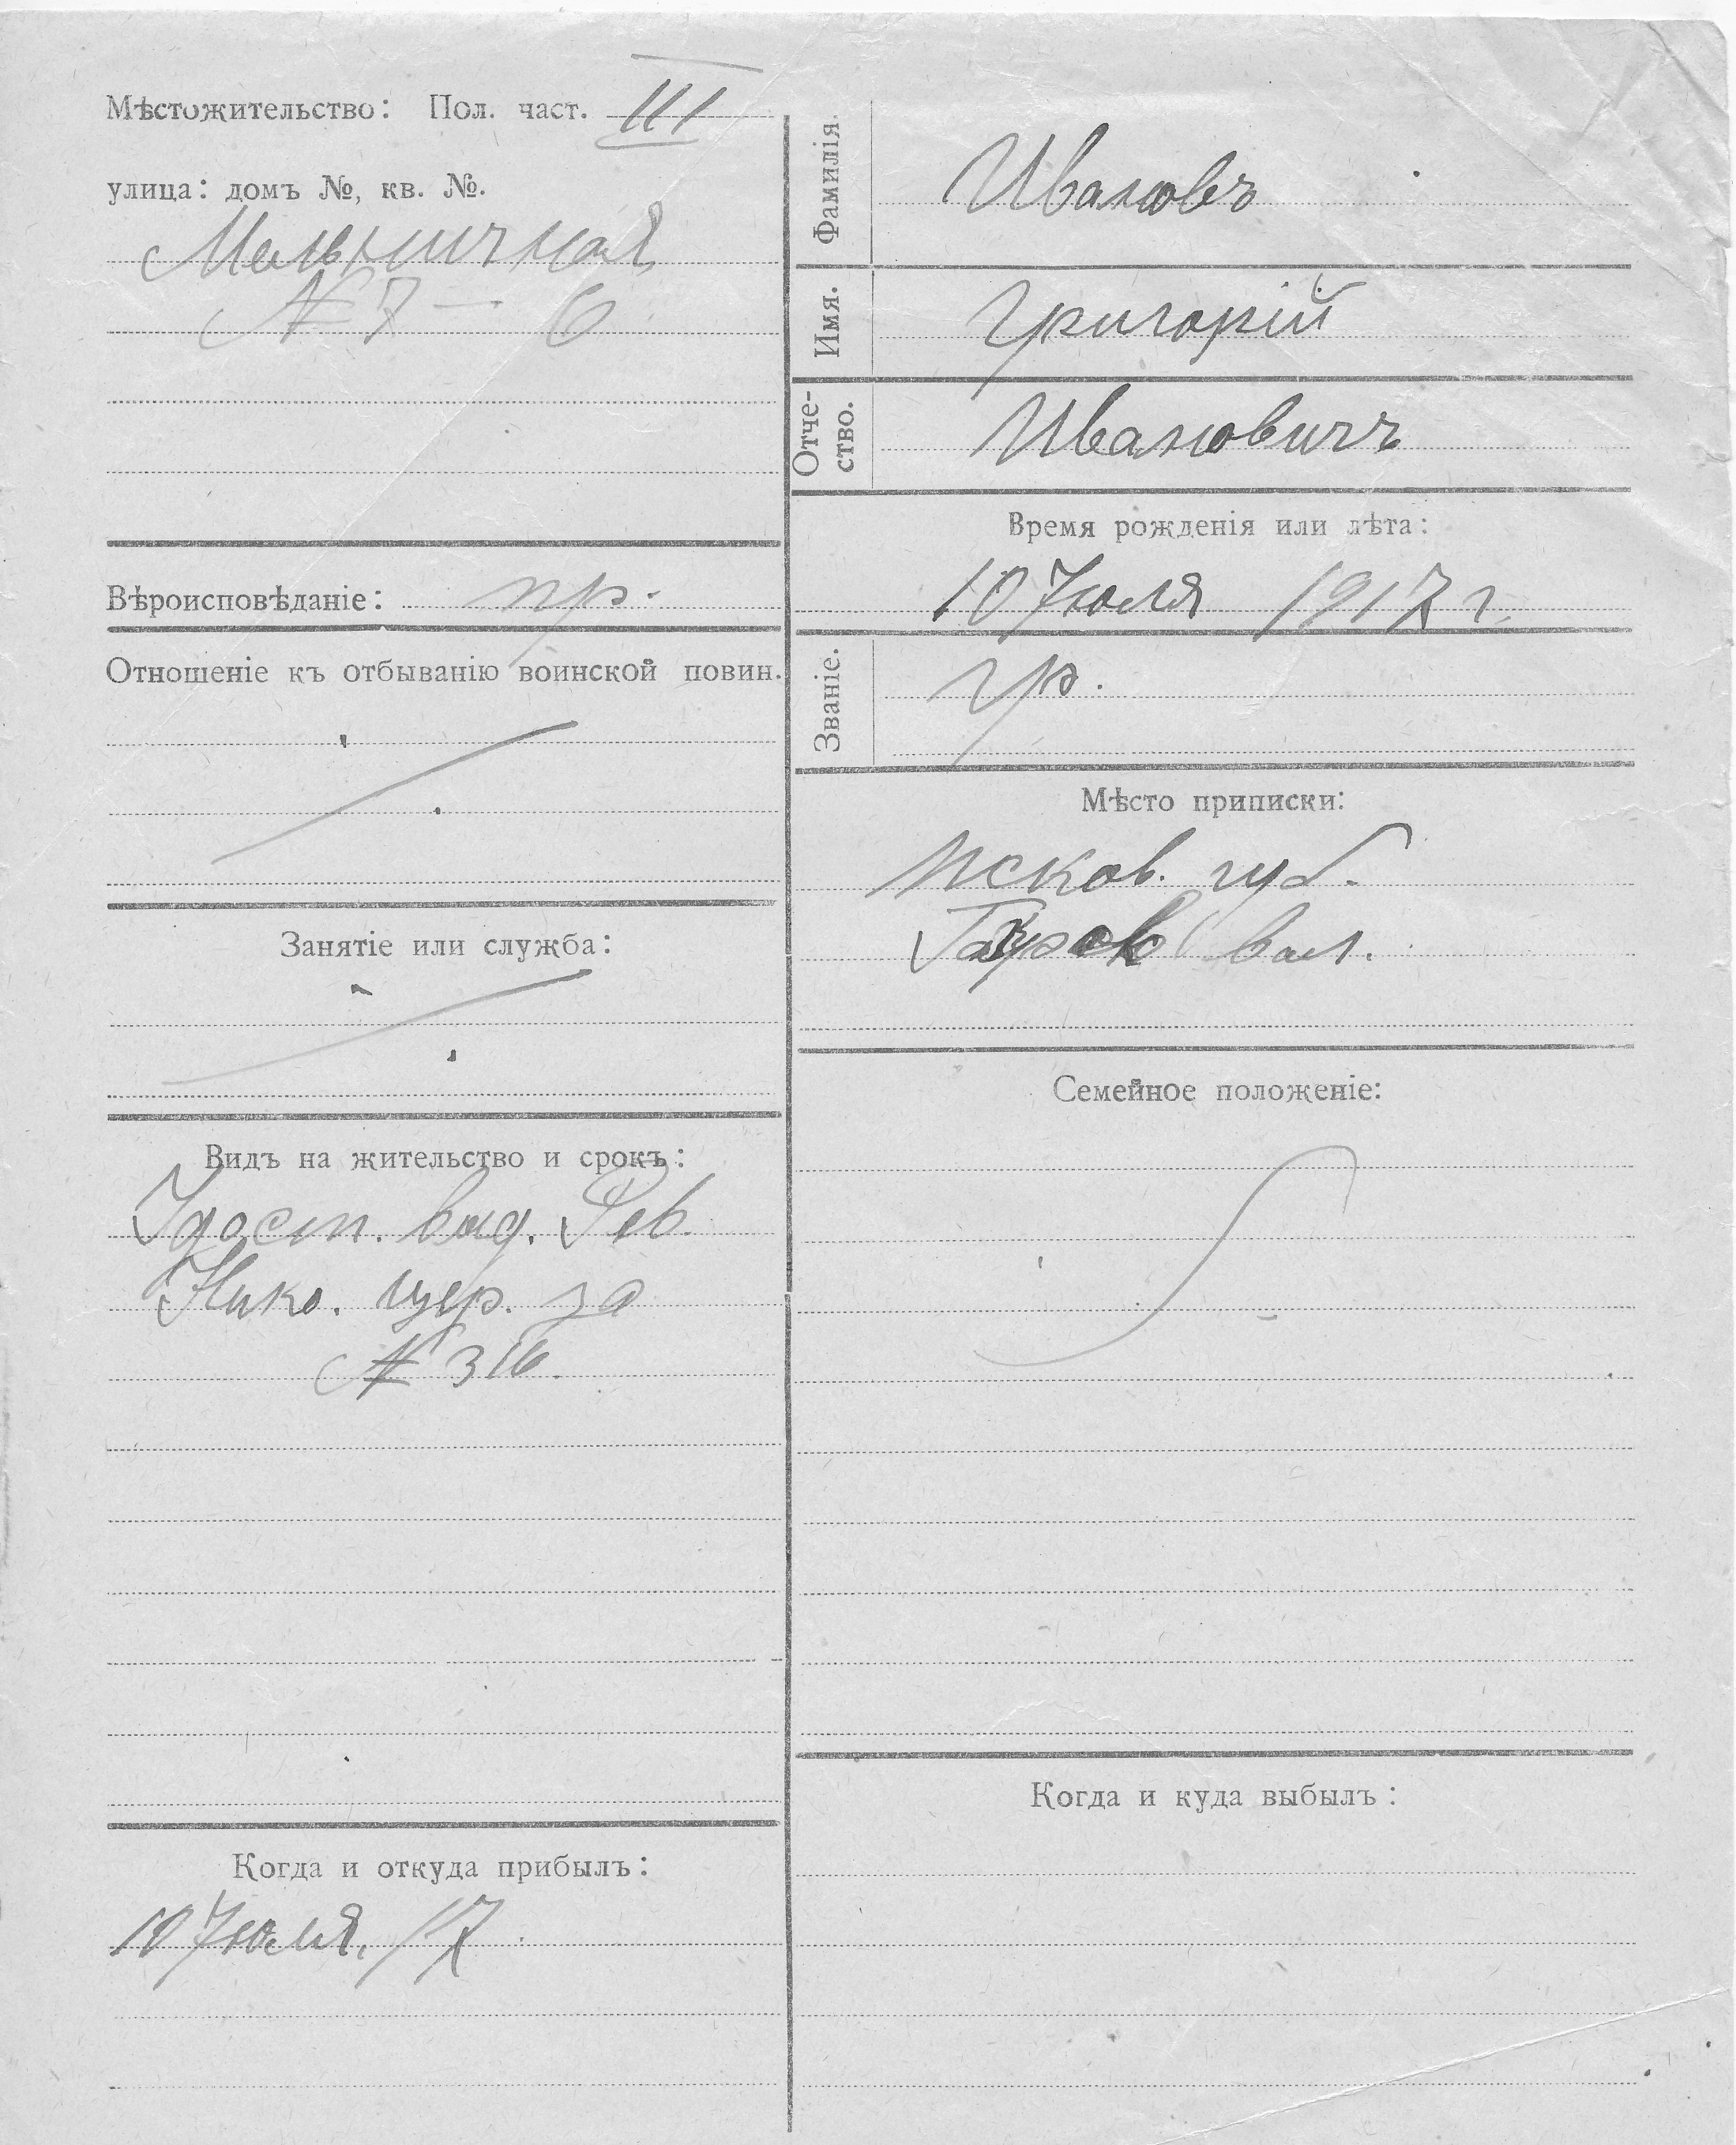 Мѣстожительство: Пол. част. III
улица: домъ №, кв. №.
Мельничная
№ 7 — 6
Вѣроисповѣданіе: пр.
Отношеніе къ отбыванію воинской повин.
Занятіе или служба:
Видъ на жительство и срокъ:
Удост. выд. Рев.
Нико. цер. за
№ 316.
Когда и откуда прибылъ:
10 Июля, 17
Фамилія.
Ивановъ
Имя.
Григорій
Отче-
ство.
Ивановичъ
Время рожденія или лѣта:
10 Июля 1917 г.
Званіе.
гр.
Мѣсто приписки:
Псков. губ.
вол.
Семейное положеніе:
Когда и куда выбылъ: